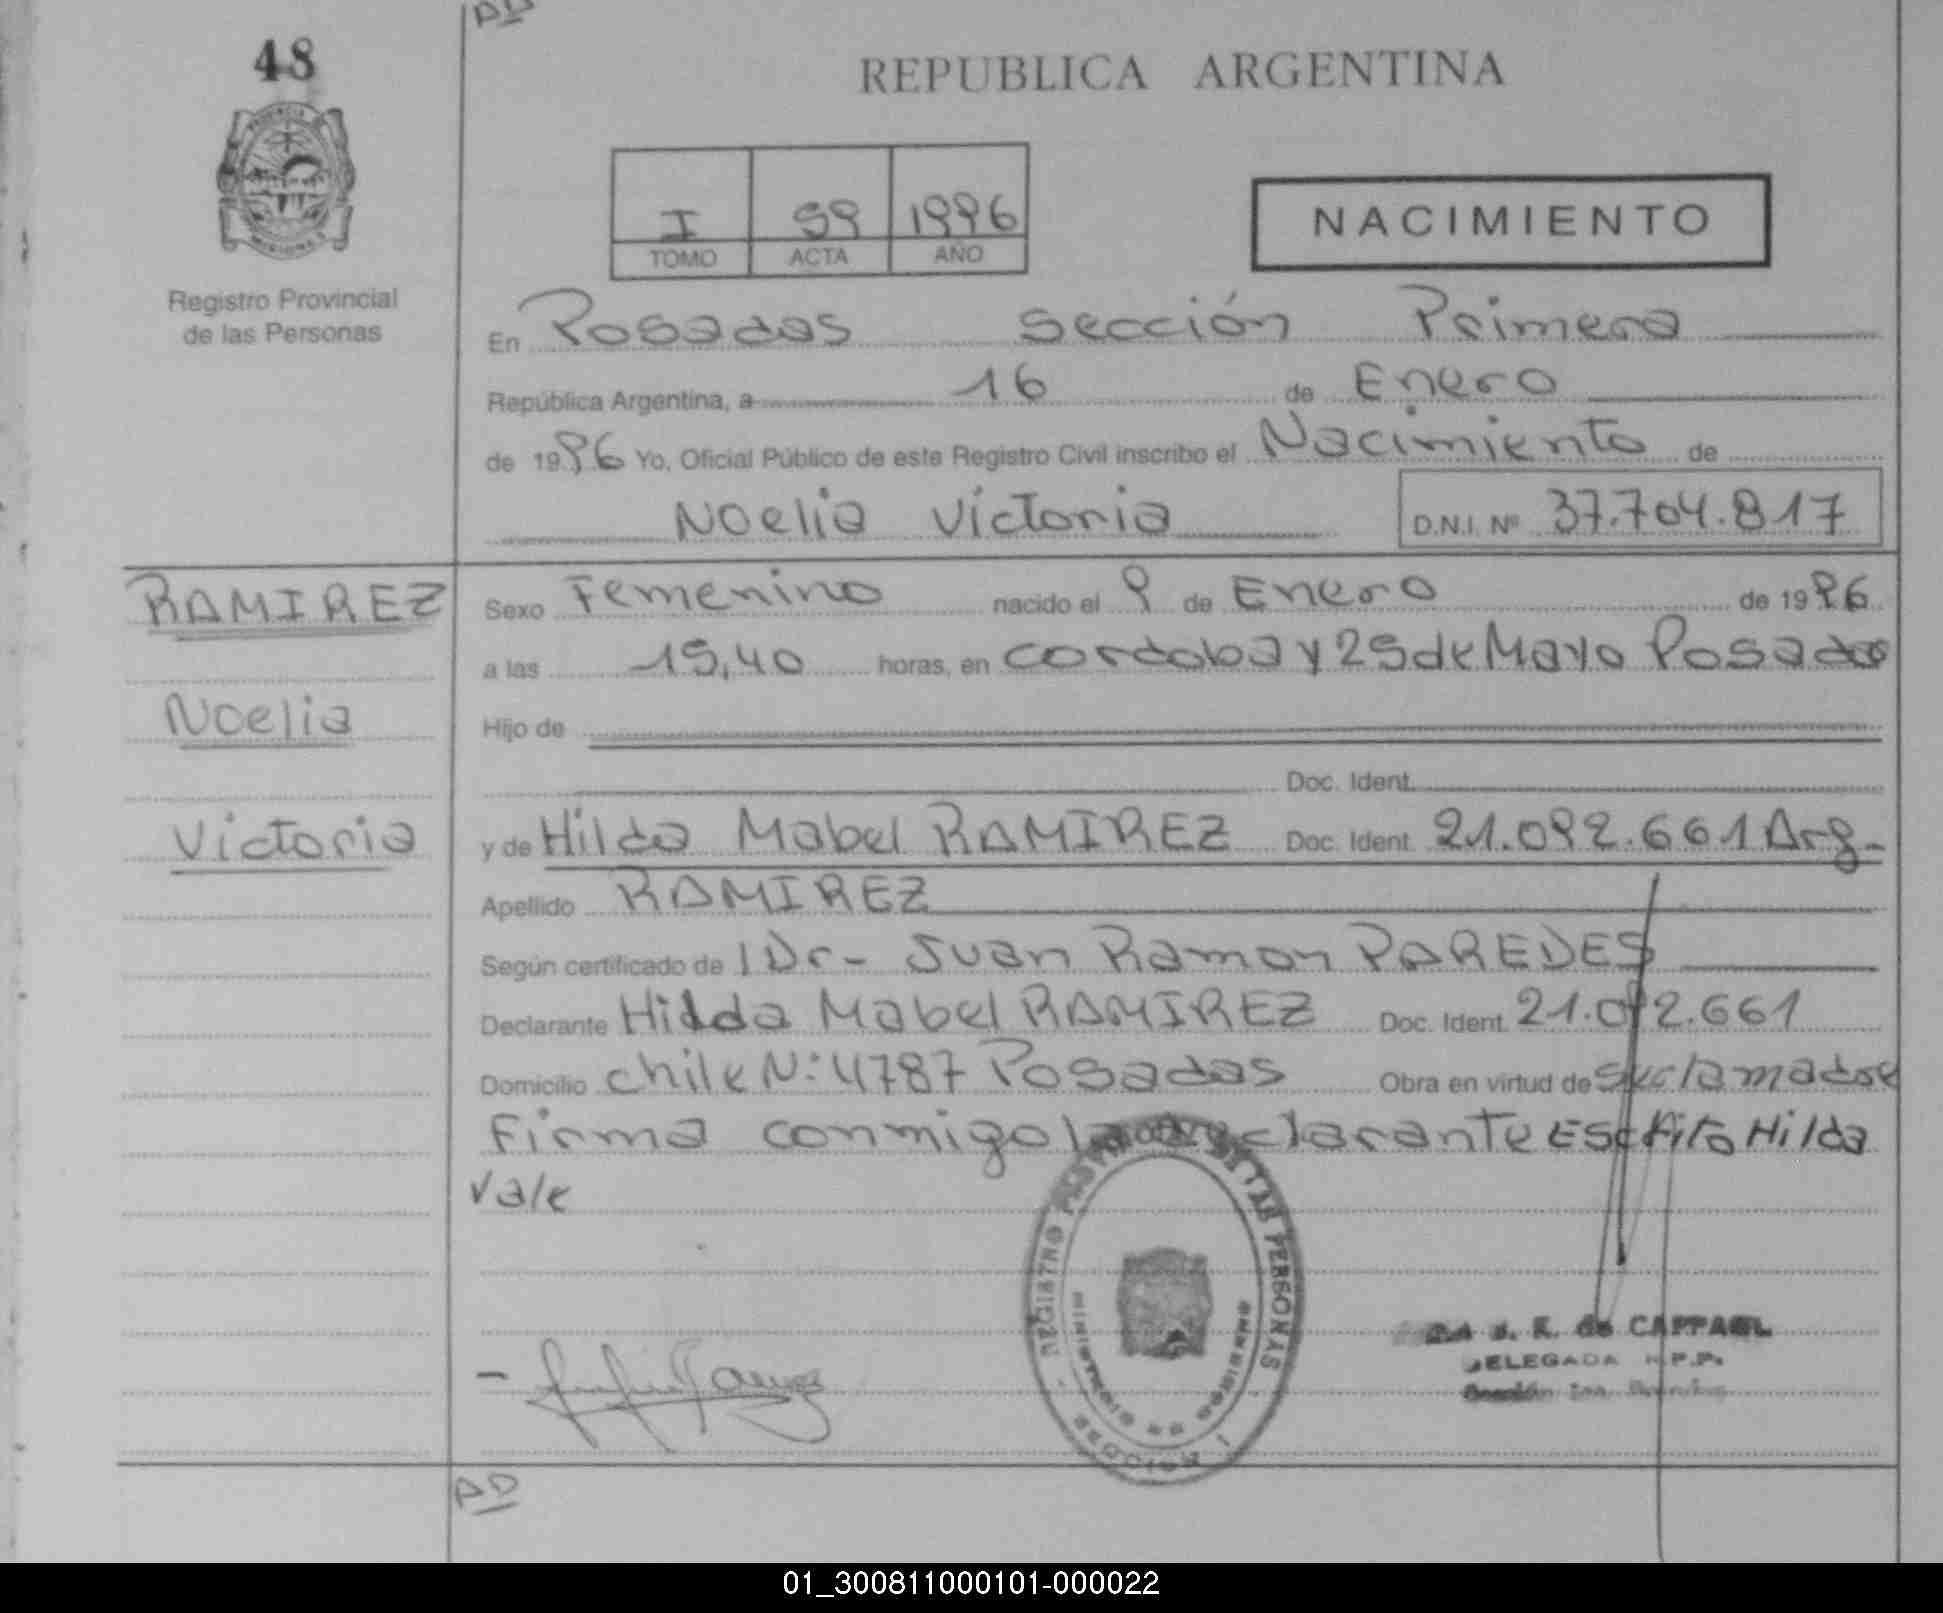 AD
48
REPUBLICA ARGENTINA
I 59 1996
TOMO ACTA AÑO
NACIMIENTO
Registro Provincial
de las Personas
En Posadas sección Primera
República Argentina, a 16 de Enero
de 1996 Yo, Oficial Público de este Registro Civil inscribo el Nacimiento de
Noelia Victoria D.N.I. Nº 37.704.817
RAMIREZ
Noelia
Victoria
Sexo Femenino nacido el 9 de Enero de 1996
a las 15,40 horas, en cordoba y 25 de Mayo Posadas
Hijo de
Doc. Ident.
y de Hilda Mabel RAMIREZ Doc. Ident. 21.092.661 Arg-
Apellido RAMIREZ
Según certificado de / Dr- Juan Ramon PAREDES
Declarante Hilda Mabel RAMIREZ Doc. Ident. 21.092.661
Domicilio chile N: 4787 Posadas Obra en virtud de
Firma conmigo la declarante Escrito Hilda
Vale
REGISTRO DE LAS PERSONAS
MINISTERIO DE GOBIERNO
SECCION 1
de CAPPAEL
DELEGADA R.P.P.
AD
01_300811000101-000022